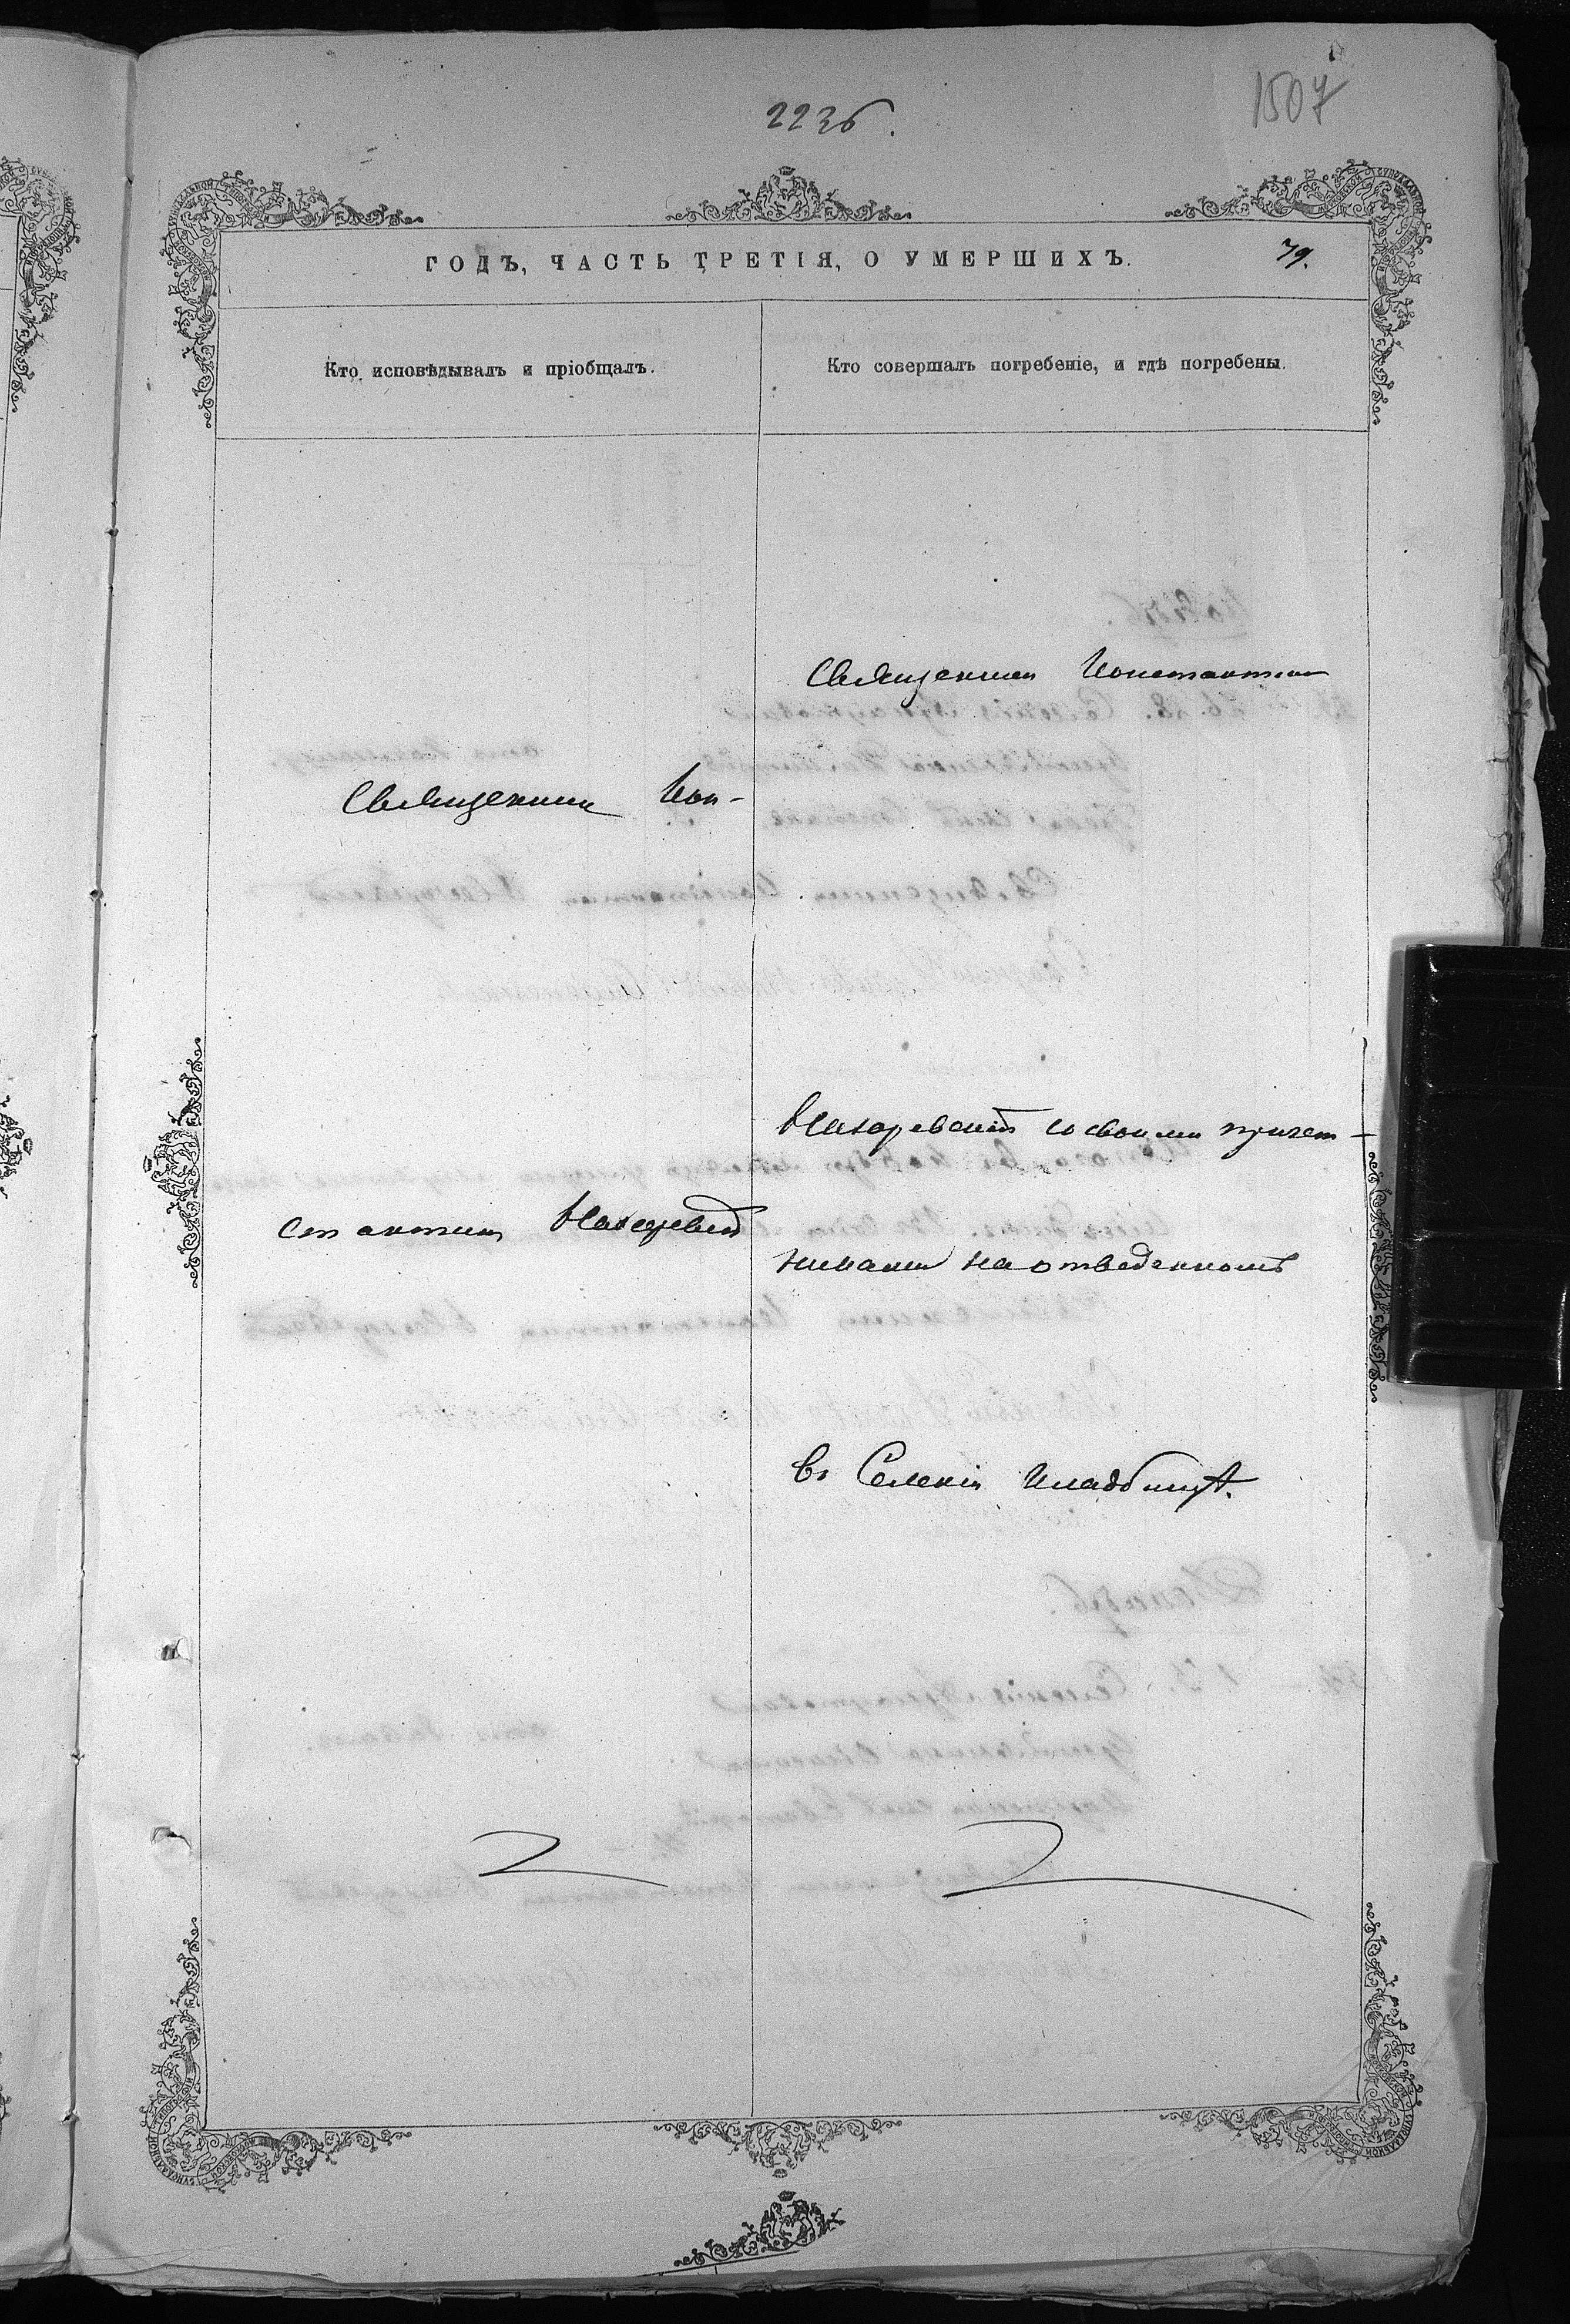 2236.
1507
ГОДЪ, ЧАСТЬ ТРЕТІЯ, О УМЕРШИХЪ.
79.
Кто исповѣдывалъ и пріобщалъ.
Кто совершалъ погребеніе, и гдѣ погребены.
Священник Кон-
стантин
Священник Константин
со своими причет-
никами на отведенномъ
въ Селеніи Кладбищѣ.